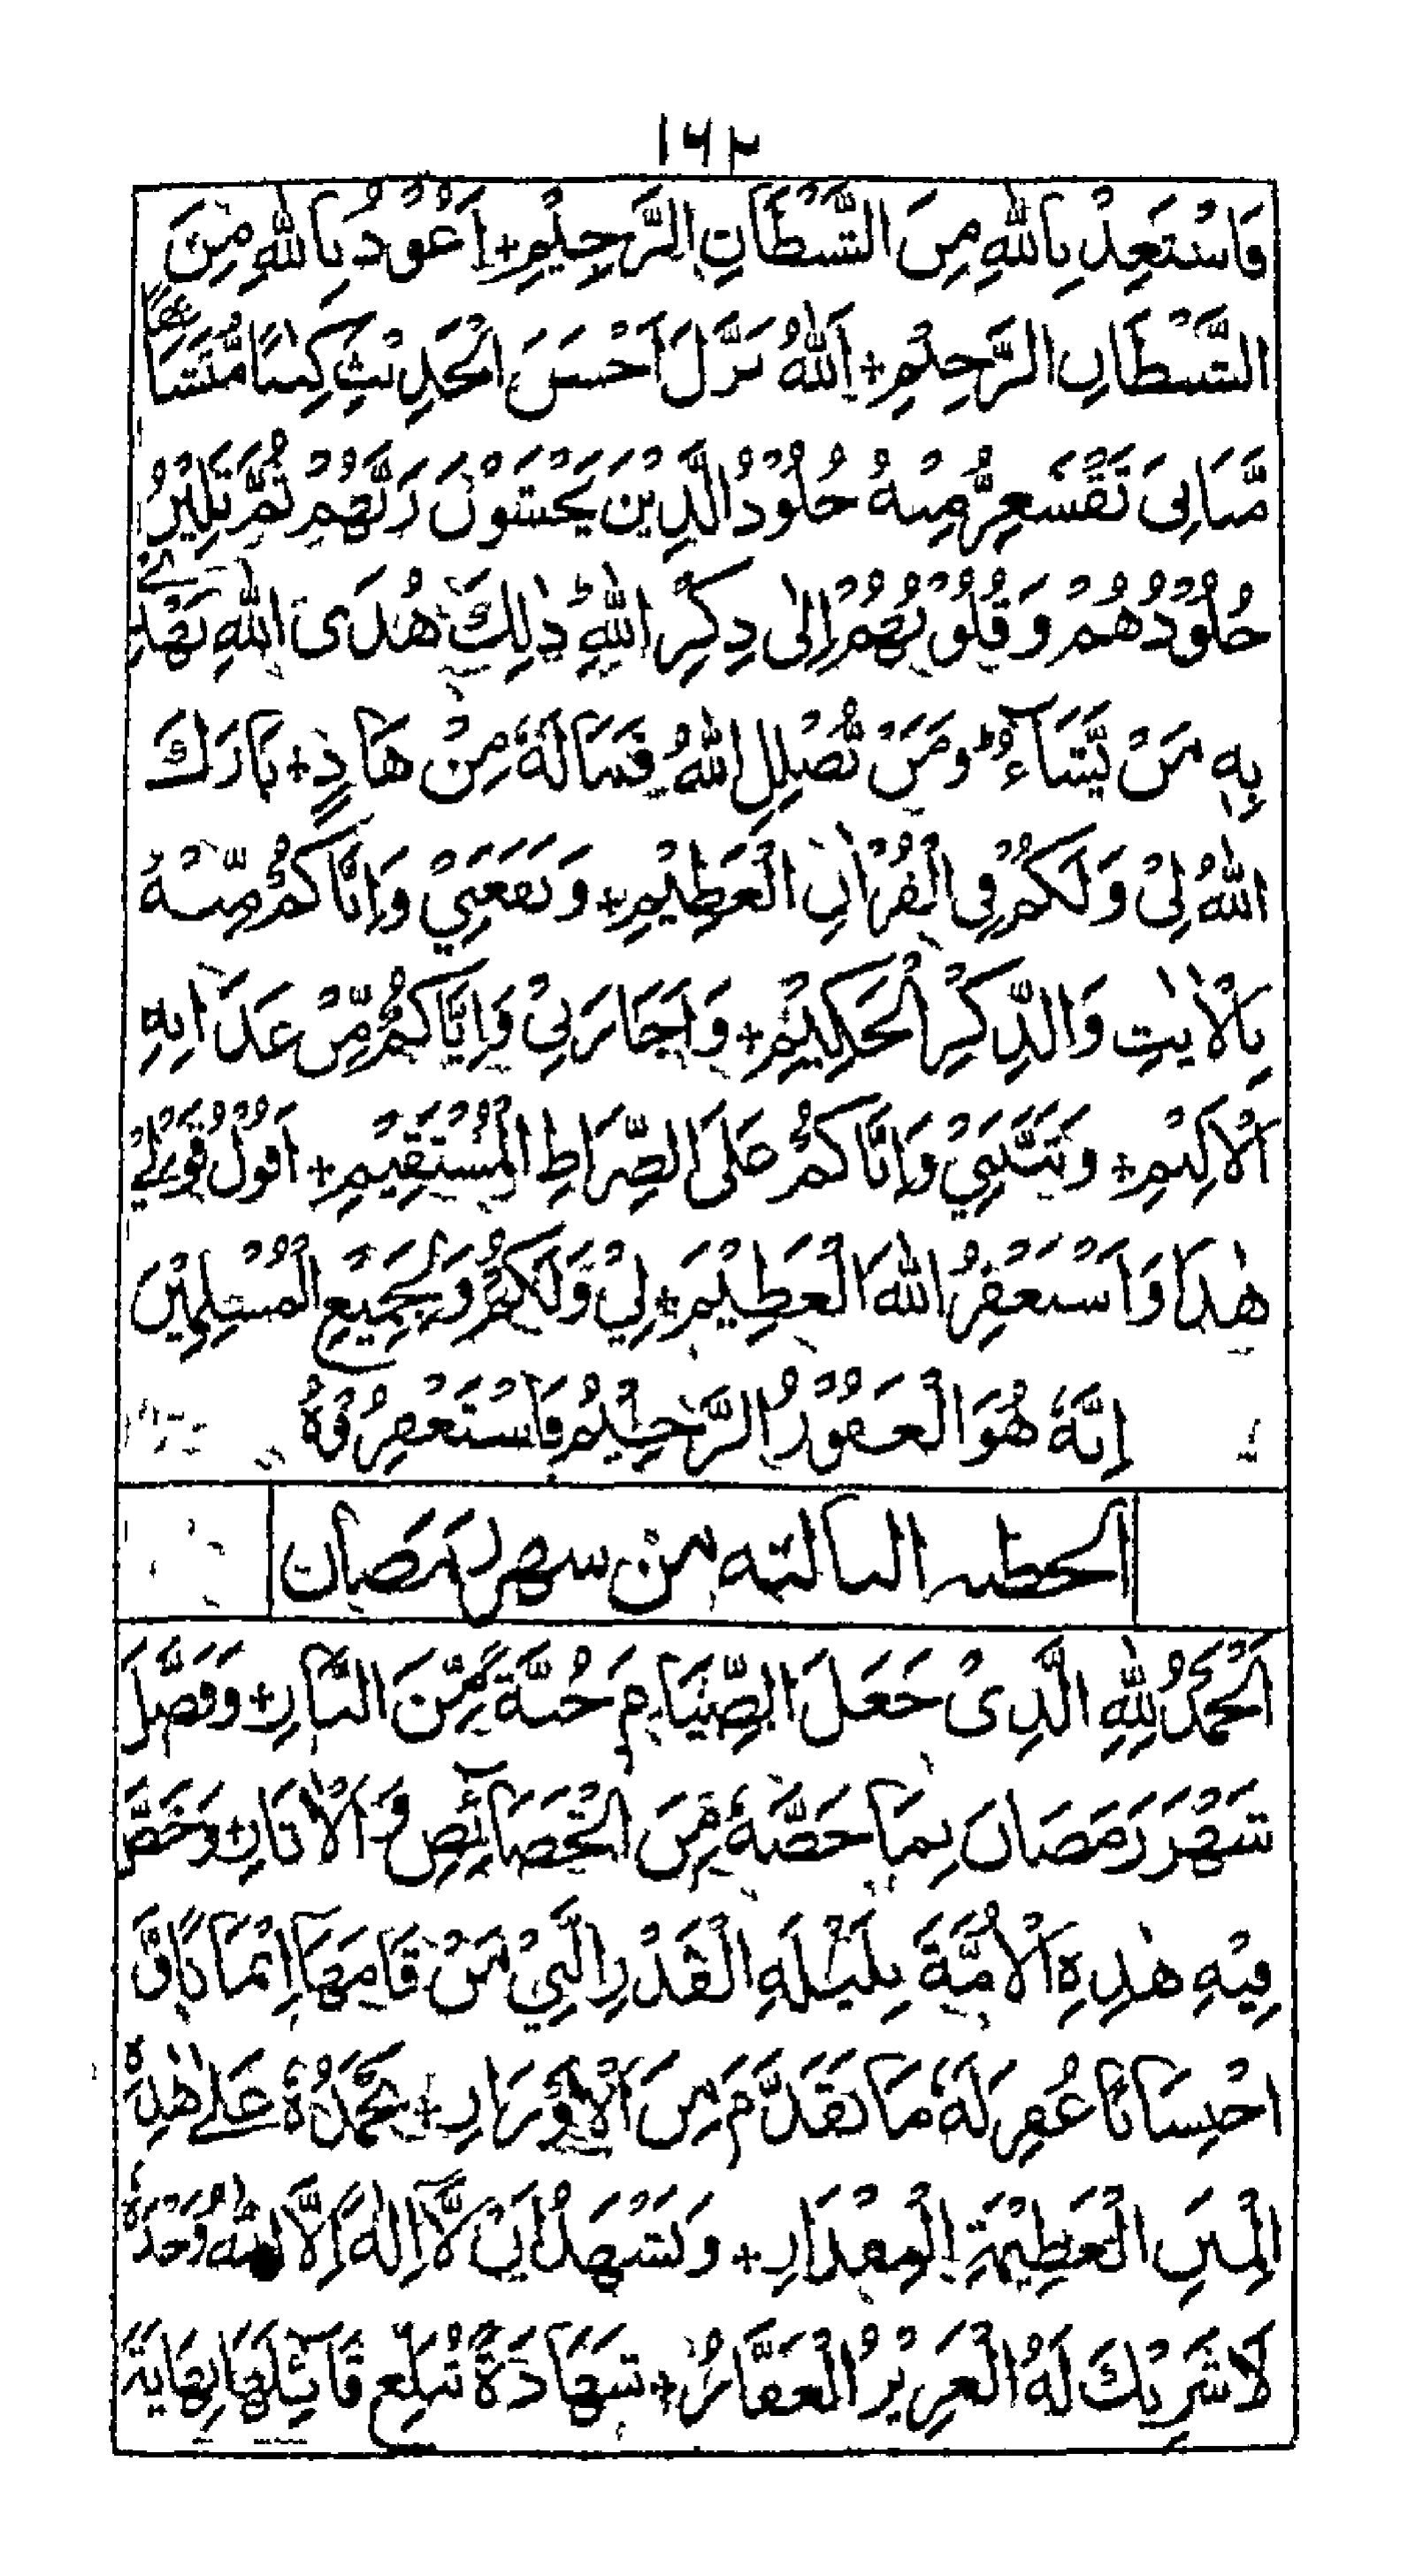 ١٦٢
فَاسْتَعِذْ بِاللّٰهِ مِنَ الشَّيْطَانِ الرَّجِيْمِ + اَعُوْذُ بِاللّٰهِ مِنَ
الشَّيْطَانِ الرَّجِيْمِ + اَللّٰهُ نَزَّلَ اَحْسَنَ الْحَدِيْثِ كِتٰبًا مُّتَشَابِهًا
مَّثَانِیَ تَقْشَعِرُّ مِنْهُ جُلُوْدُ الَّذِيْنَ يَخْشَوْنَ رَبَّهُمْ ثُمَّ تَلِيْنُ
جُلُوْدُهُمْ وَقُلُوْبُهُمْ اِلٰى ذِكْرِ اللّٰهِ ؕ ذٰلِكَ هُدَى اللّٰهِ يَهْدِیْ
بِهٖ مَنْ يَّشَآءُ ؕ وَمَنْ يُّضْلِلِ اللّٰهُ فَمَا لَهٗ مِنْ هَادٍ + بَارَكَ
اللّٰهُ لِیْ وَلَكُمْ فِی الْقُرْاٰنِ الْعَظِيْمِ + وَنَفَعَنِيْ وَاِيَّاكُمْ مِّنْهُ
بِالْاٰيٰتِ وَالذِّكْرِ الْحَكِيْمِ + وَاَجَارَنِیْ وَاِيَّاكُمْ مِّنْ عَذَابِهِ
الْاَلِيْمِ + وَثَبَّتَنِيْ وَاِيَّاكُمْ عَلَى الصِّرَاطِ الْمُسْتَقِيْمِ + اَقُوْلُ قَوْلِيْ
هٰذَا وَاَسْتَغْفِرُ اللّٰهَ الْعَظِيْمَ + لِيْ وَلَكُمْ وَلِجَمِيْعِ الْمُسْلِمِيْنَ
اِنَّهٗ هُوَ الْغَفُوْرُ الرَّحِيْمُ فَاسْتَغْفِرُوْهُ
الخطبه الثالثه من شهر رمضان
اَلْحَمْدُ لِلّٰهِ الَّذِیْ جَعَلَ الصِّيَامَ جُنَّةً مِّنَ النَّارِ + وَفَضَّلَ
شَهْرَ رَمَضَانَ بِمَا خَصَّهٗ مِنَ الْخَصَائِصِ وَالْاٰثَارِ + وَخَصَّ
فِيْهِ هٰذِهِ الْاُمَّةَ بِلَيْلَةِ الْقَدْرِ الَّتِيْ مَنْ قَامَهَا اِيْمَانًا وَّ
احْتِسَابًا غُفِرَ لَهٗ مَا تَقَدَّمَ مِنَ الْاَوْزَارِ + نَحْمَدُهٗ عَلٰے هٰذِهِ
الْمِنَنِ الْعَظِيْمَةِ الْمِقْدَارِ + وَنَشْهَدُ اَنْ لَّآ اِلٰهَ اِلَّا اللّٰهُ وَحْدَهٗ
لَا شَرِيْكَ لَهُ الْعَزِيْزُ الْغَفَّارُ + شَهَادَةً تُبَلِّغُ قَآئِلَهَا نِهَايَةَ